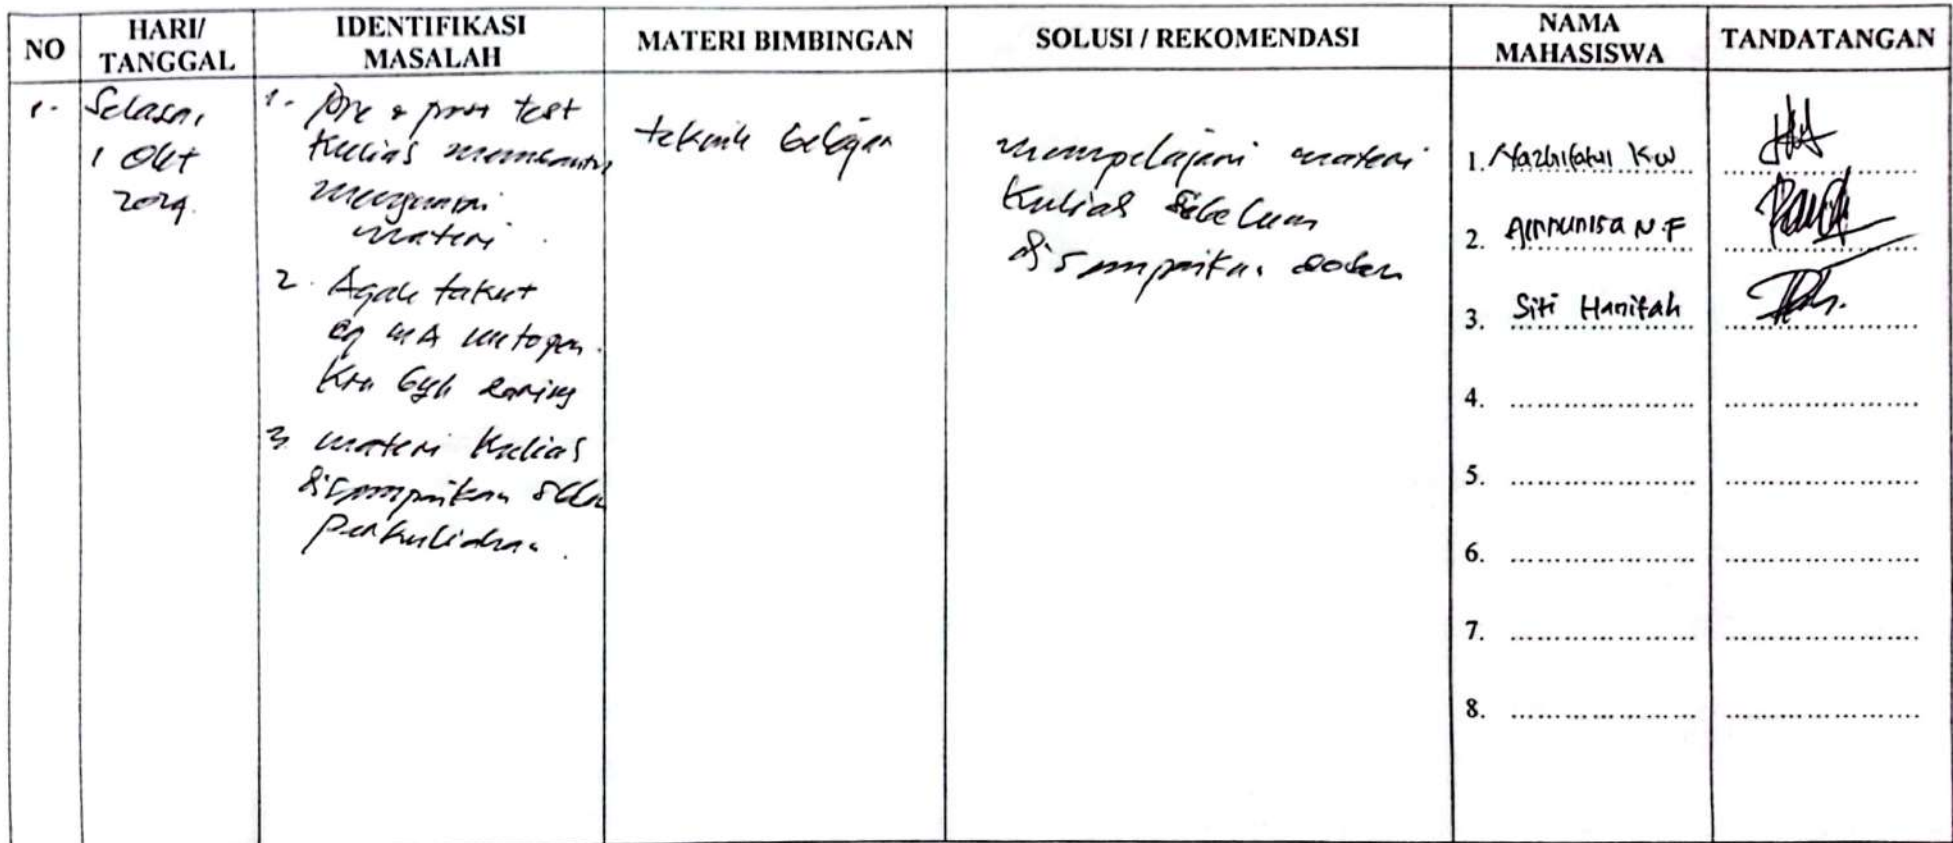 NO
HARI/
TANGGAL
IDENTIFIKASI
MASALAH
MATERI BIMBINGAN
SOLUSI / REKOMENDASI
NAMA
MAHASISWA
TANDATANGAN
1.
Selasa,
1 Okt
2024.
1. Pre & post test
Kuliah membantu
menguasai
materi.
2. Agak takut
dg MA metopen.
Krn byk
3. materi Kuliah
disampaikan sblm
perkuliahan.
teknik belajar
mempelajari materi
Kuliah sebelum
disampaikan dosen
1. Nazhifatul KW
2. Ainnunisa N.F
3. Siti Hanifah
4.
5.
6.
7.
8.